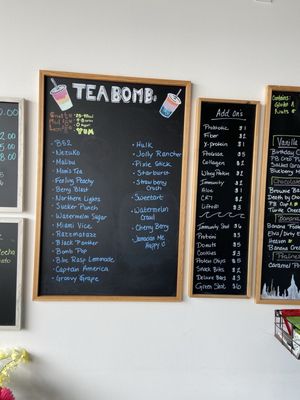 00
2.00
7.00
8.00
TEA BOMB:
• B52
• Nezuko
• Malibu
• Mom's Tea
• Feeling Peachy
• Berry Blast
• Northern Lights
• Sucker Punch
• Watermelon Sugar
• Miami Vice
• Razzmatazz
• Black Panther
• Bomb Pop
• Blue Rasp Lemonade
• Captain America
• Groovy Grape
• Hulk
• Jolly Rancher
• Pixie Stick
• Starburst
• Strawberry Crush
• Sweetart
• Watermelon Crawl
• Cherry Berry
• Jamaican Me Happy
YUM
Add On's
Probiotic $
Fiber $
Y-protein $
Prosam $
Collagen $
Whey Protein $1
Immunity $1
Aloe $1
CR7 $1
Liftoff $3
Immunity Shot $6
Protein: $5
Donuts $
Cookies $
Protein Chips $3
Snack Bites $2
Deluxe Bars $3
Green Shot $6
Contains:
Nuts
Vanilla
Birthday C
Banana C
PB Crisp T
Salted Car
Blueberry M
Brownie Ba
Death by Cho
PB Cup
Banana
Banana Fos
Elvis/Dirty El
Heaven
Praline
Caramel